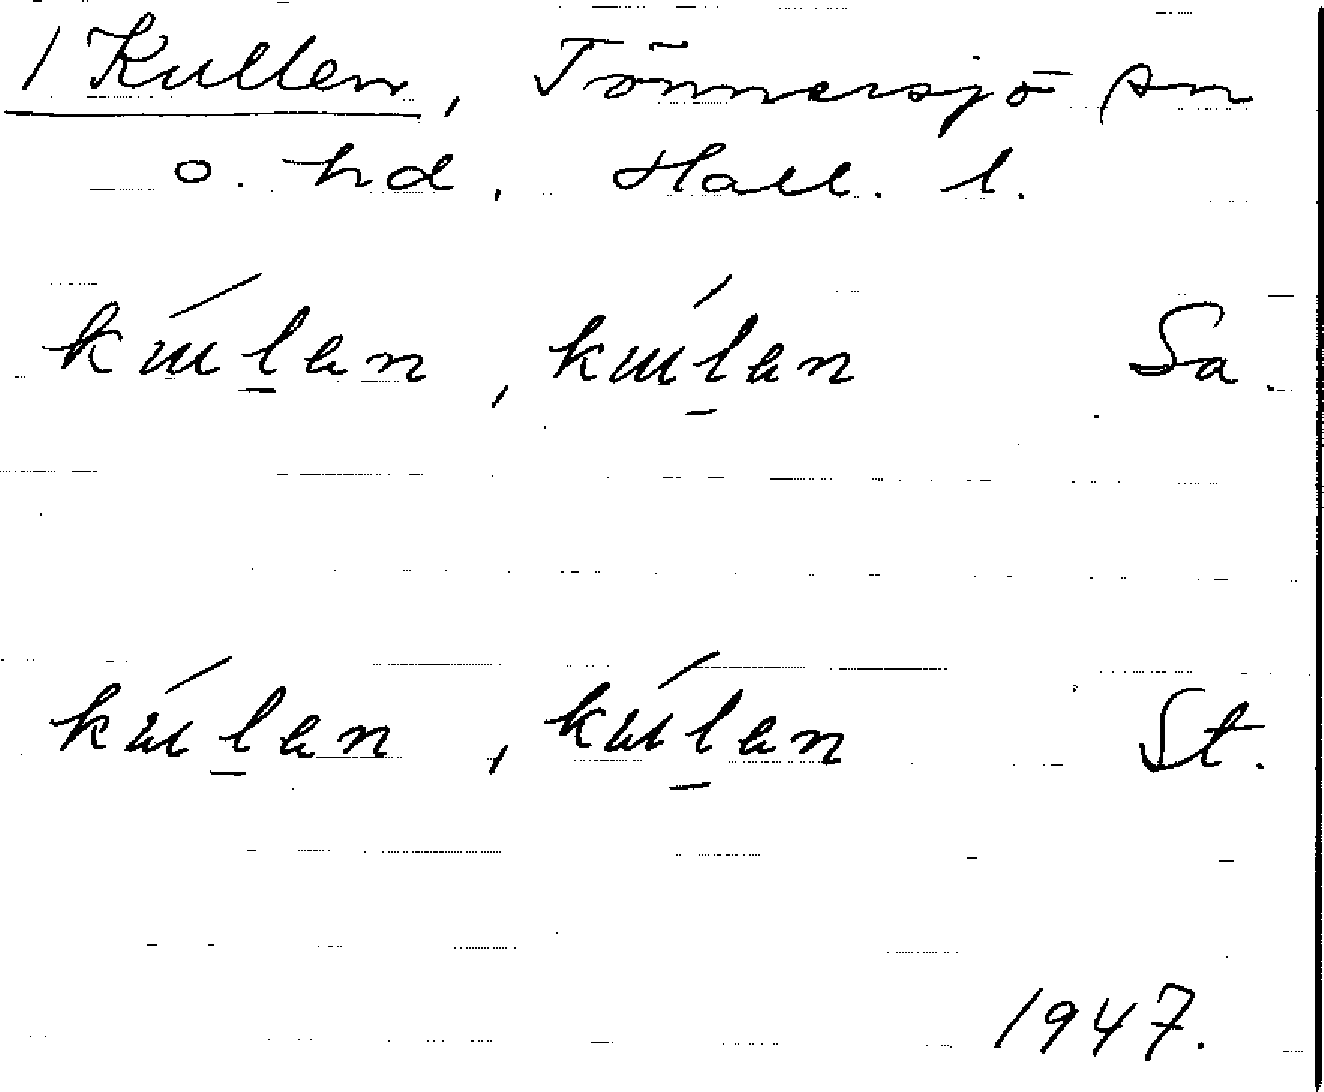 / Kullen, Tönnersjö sn
o. hd, Hall. l.
kúlan, kúlan Sa.
kúlan, kúlan St.
1947.